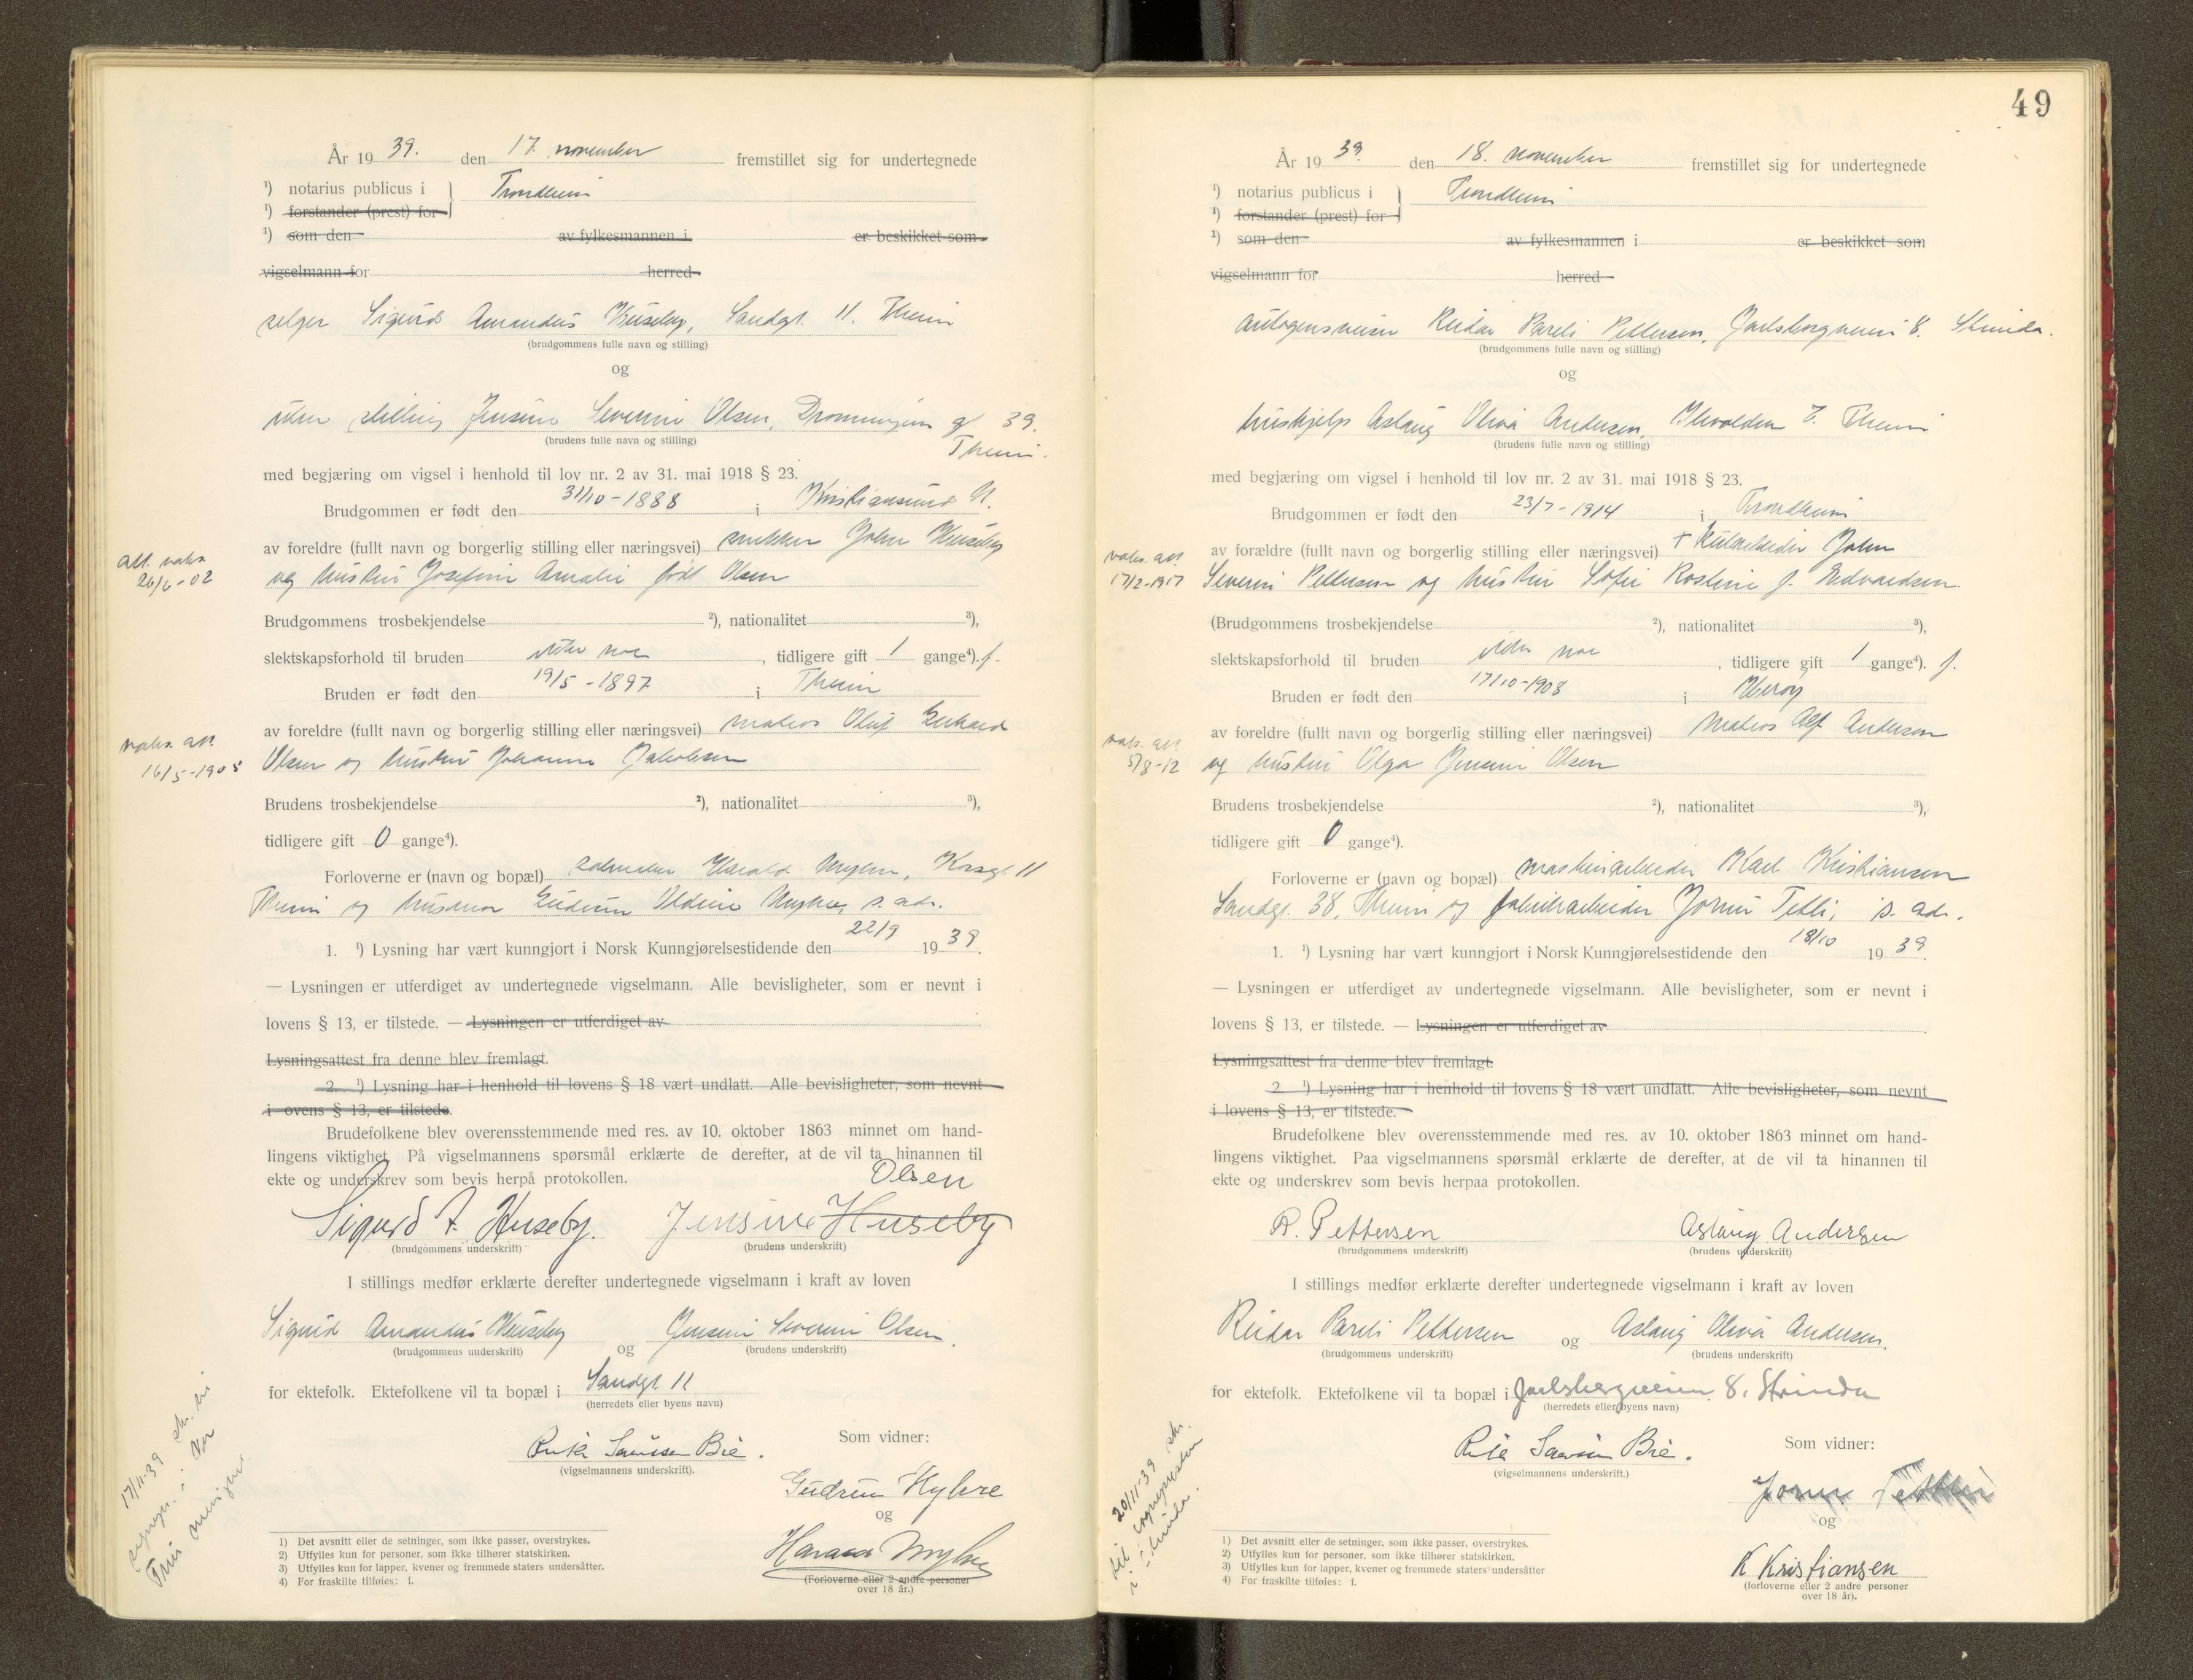 År 19 39. den 17. november fremstillet sig for undertegnede
¹) notarius publicus i } Trondheim
¹) forstander (prest) for
¹) som den av fylkesmannen i er beskikket som
vigselmann for herred
selger Sigurd Amandus Huseby, Sandgt. 11. Thm
(brudgommens fulle navn og stilling)
og
uten stilling Jensine Severine Olsen, Dronningens g 39.
(brudens fulle navn og stilling)
Thm.
med begjæring om vigsel i henhold til lov nr. 2 av 31. mai 1918 § 23.
Brudgommen er født den 31/10-1888 i Kristiansund N.
av foreldre (fullt navn og borgerlig stilling eller næringsvei) snekker John Huseby
att. vaks. 26/6-02
og hustru Josefine Amalie født Olsen
Brudgommens trosbekjendelse ²), nationalitet ³),
slektskapsforhold til bruden uten noe, tidligere gift 1 gange⁴). f.
Bruden er født den 19/5-1897 i Thm
av foreldre (fullt navn og borgerlig stilling eller næringsvei) matros Oluf Gerhard
vaks. att. 16/5-1905
Olsen og hustru Johanna Jakobsen
Brudens trosbekjendelse ²), nationalitet ³),
tidligere gift 0 gange⁴).
Forloverne er (navn og bopæl) Harald Myhre, Korsgt. 11
Thm og husmor Gudrun Myhre, s. adr.
1. ¹) Lysning har vært kunngjort i Norsk Kunngjørelsestidende den 22/9 19 39.
— Lysningen er utferdiget av undertegnede vigselmann. Alle bevisligheter, som er nevnt i
lovens § 13, er tilstede. — Lysningen er utferdiget av
Lysningsattest fra denne blev fremlagt.
2. ¹) Lysning har i henhold til lovens § 18 vært undlatt. Alle bevisligheter, som nevnt
i ovens § 13, er tilstede.
Brudefolkene blev overensstemmende med res. av 10. oktober 1863 minnet om hand-
lingens viktighet. På vigselmannens spørsmål erklærte de derefter, at de vil ta hinannen til
ekte og underskrev som bevis herpå protokollen.
Olsen
Sigurd A. Huseby. Jensine Huseby
(brudgommens underskrift) (brudens underskrift)
I stillings medfør erklærte derefter undertegnede vigselmann i kraft av loven
Sigurd Amandus Huseby og Jensine Severine Olsen.
(brudgommens underskrift) (brudens underskrift)
for ektefolk. Ektefolkene vil ta bopæl i Sandgt. 11
(herredets eller byens navn)
Bie.
(vigselmannens underskrift).
Som vidner:
Gudrun Myhre
og
Harald Myhre
(Forloverne eller 2 andre personer
over 18 år.)
17/11-39 skr. til
sognepr. i Vår
Frue menighet
1) Det avsnitt eller de setninger, som ikke passer, overstrykes.
2) Utfylles kun for personer, som ikke tilhører statskirken.
3) Utfylles kun for lapper, kvener og fremmede staters undersåtter.
4) For fraskilte tilføies: f.
49
År 19 39. den 18. november fremstillet sig for undertegnede
¹) notarius publicus i } Trondheim
¹) forstander (prest) for
¹) som den av fylkesmannen i er beskikket som
vigselmann for herred
Reidar Pareli Pettersen, Jarlsbergveien 8. Strinda.
(brudgommens fulle navn og stilling)
og
hushjelp Aslaug Oliva Andersen, Ilevolden 7. Thm
(brudens fulle navn og stilling)
med begjæring om vigsel i henhold til lov nr. 2 av 31. mai 1918 § 23.
Brudgommen er født den 23/7-1914 i Trondheim
av forældre (fullt navn og borgerlig stilling eller næringsvei) + John
vaks. att. 17/2-1917
Severin Pettersen og hustru Sofie Rostine f. Edvardsen.
(Brudgommens trosbekjendelse ²), nationalitet ³),
slektskapsforhold til bruden uten noe, tidligere gift 1 gange⁴). f.
Bruden er født den 17/10-1908 i Inderøy
av foreldre (fullt navn og borgerlig stilling eller næringsvei) matros Alf Andersen
vaks. att. 5/8-12
og hustru Olga Jensine Olsen
Brudens trosbekjendelse ²), nationalitet ³),
tidligere gift 0 gange⁴).
Forloverne er (navn og bopæl) maskinarbeider Karl Kristiansen
Sandgt. 38, Thm og fabrikarbeider Jorun Tetli, s. adr.
1. ¹) Lysning har vært kunngjort i Norsk Kunngjørelsestidende den 18/10 19 39.
— Lysningen er utferdiget av undertegnede vigselmann. Alle bevisligheter, som er nevnt i
lovens § 13, er tilstede. — Lysningen er utferdiget av
Lysningsattest fra denne blev fremlagt.
2 ¹) Lysning har i henhold til lovens § 18 vært undlatt. Alle bevisligheter, som nevnt
i lovens § 13, er tilstede.
Brudefolkene blev overensstemmende med res. av 10. oktober 1863 minnet om hand-
lingens viktighet. Paa vigselmannens spørsmål erklærte de derefter, at de vil ta hinannen til
ekte og underskrev som bevis herpaa protokollen.
R. Pettersen Aslaug Andersen
(brudgommens underskrift) (brudens underskrift)
I stillings medfør erklærte derefter undertegnede vigselmann i kraft av loven
Reidar Pareli Pettersen og Aslaug Oliva Andersen.
(brudgommens underskrift) (brudens underskrift)
for ektefolk. Ektefolkene vil ta bopæl i Jarlsbergveien 8, Strinda
(herredets eller byens navn)
Bie.
(vigselmannens underskrift.)
Som vidner:
Jorun
og
K Kristiansen
(forloverne eller 2 andre personer
over 18 år).
20/11-39 skr.
til sognepresten
i Strinda.
1) Det avsnitt eller de setninger, som ikke passer, overstrykes.
2) Utfylles kun for personer, som ikke tilhører statskirken.
3) Utfylles kun for lapper, kvener og fremmede staters undersåtter
4) For fraskilte tilføies: f.